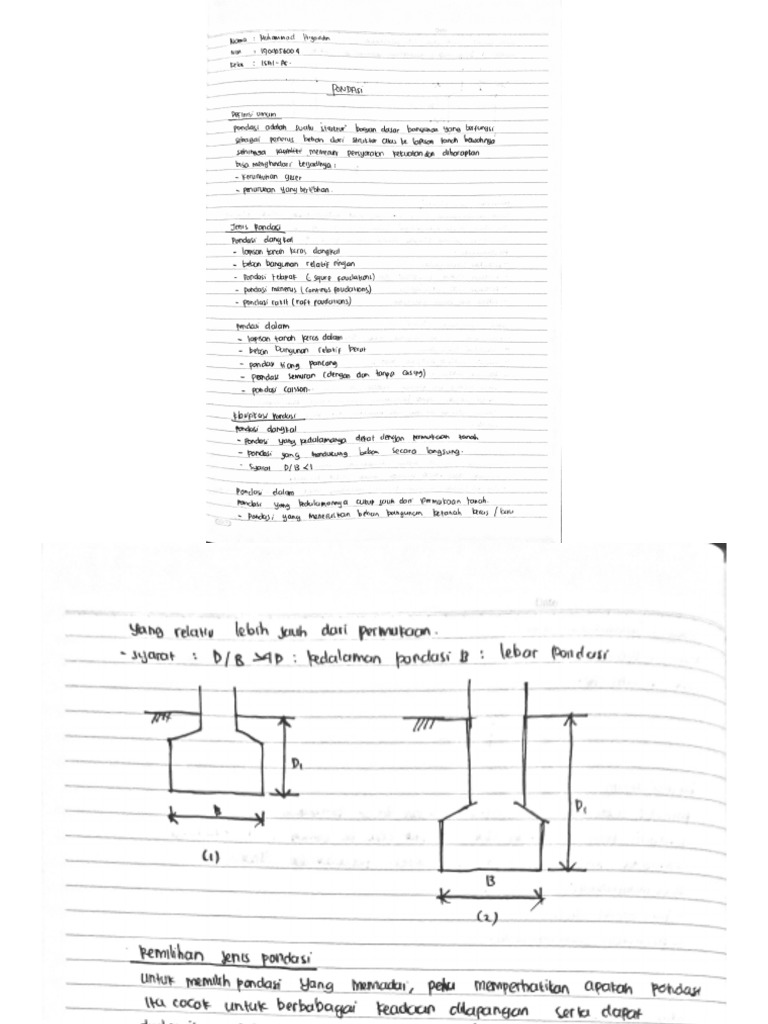 Nama : Muhammad
Kelas : ISM1-AE.
PONDASI
Definisi umum
pondasi adalah suatu struktur bagian dasar bangunan yang berfungsi
sebagai penerus beban dari struktur atas ke lapisan tanah bawahnya
sehingga memenuhi persyaratan kekuatan dan diharapkan
bisa menghindari terjadinya :
- keruntuhan geser
- penurunan yang berlebihan.
Jenis Pondasi
Pondasi dangkal
- lapisan tanah keras dangkal
- beban bangunan relatif ringan
- Pondasi telapak (square foundations)
- pondasi menerus (continus foundations)
- pondasi rakit (raft foundations)
Pondasi dalam
- lapisan tanah keras dalam
- beban bangunan relatif berat
- pondasi tiang pancang
- pondasi sumuran (dengan dan tanpa casing)
- pondasi caisson.
Klasifikasi Pondasi
Pondasi dangkal
- pondasi yang kedalamannya dekat dengan permukaan tanah
- pondasi yang mendukung beban secara langsung.
- Syarat D/B <1
Pondasi dalam
Pondasi yang kedalamannya cukup jauh dari permukaan tanah.
- Pondasi yang meneruskan beban bangunan ketanah keras / batu
Date
yang relatif lebih jauh dari permukaan.
- Syarat : D/B >4 D : kedalaman pondasi B : lebar Pondasi
D₁
B
(1)
D₁
B
(2)
Pemilihan Jenis pondasi
Untuk memilih pondasi yang memadai, perlu memperhatikan apakah pondasi
itu cocok untuk berbabagai keadaan dilapangan serta dapat